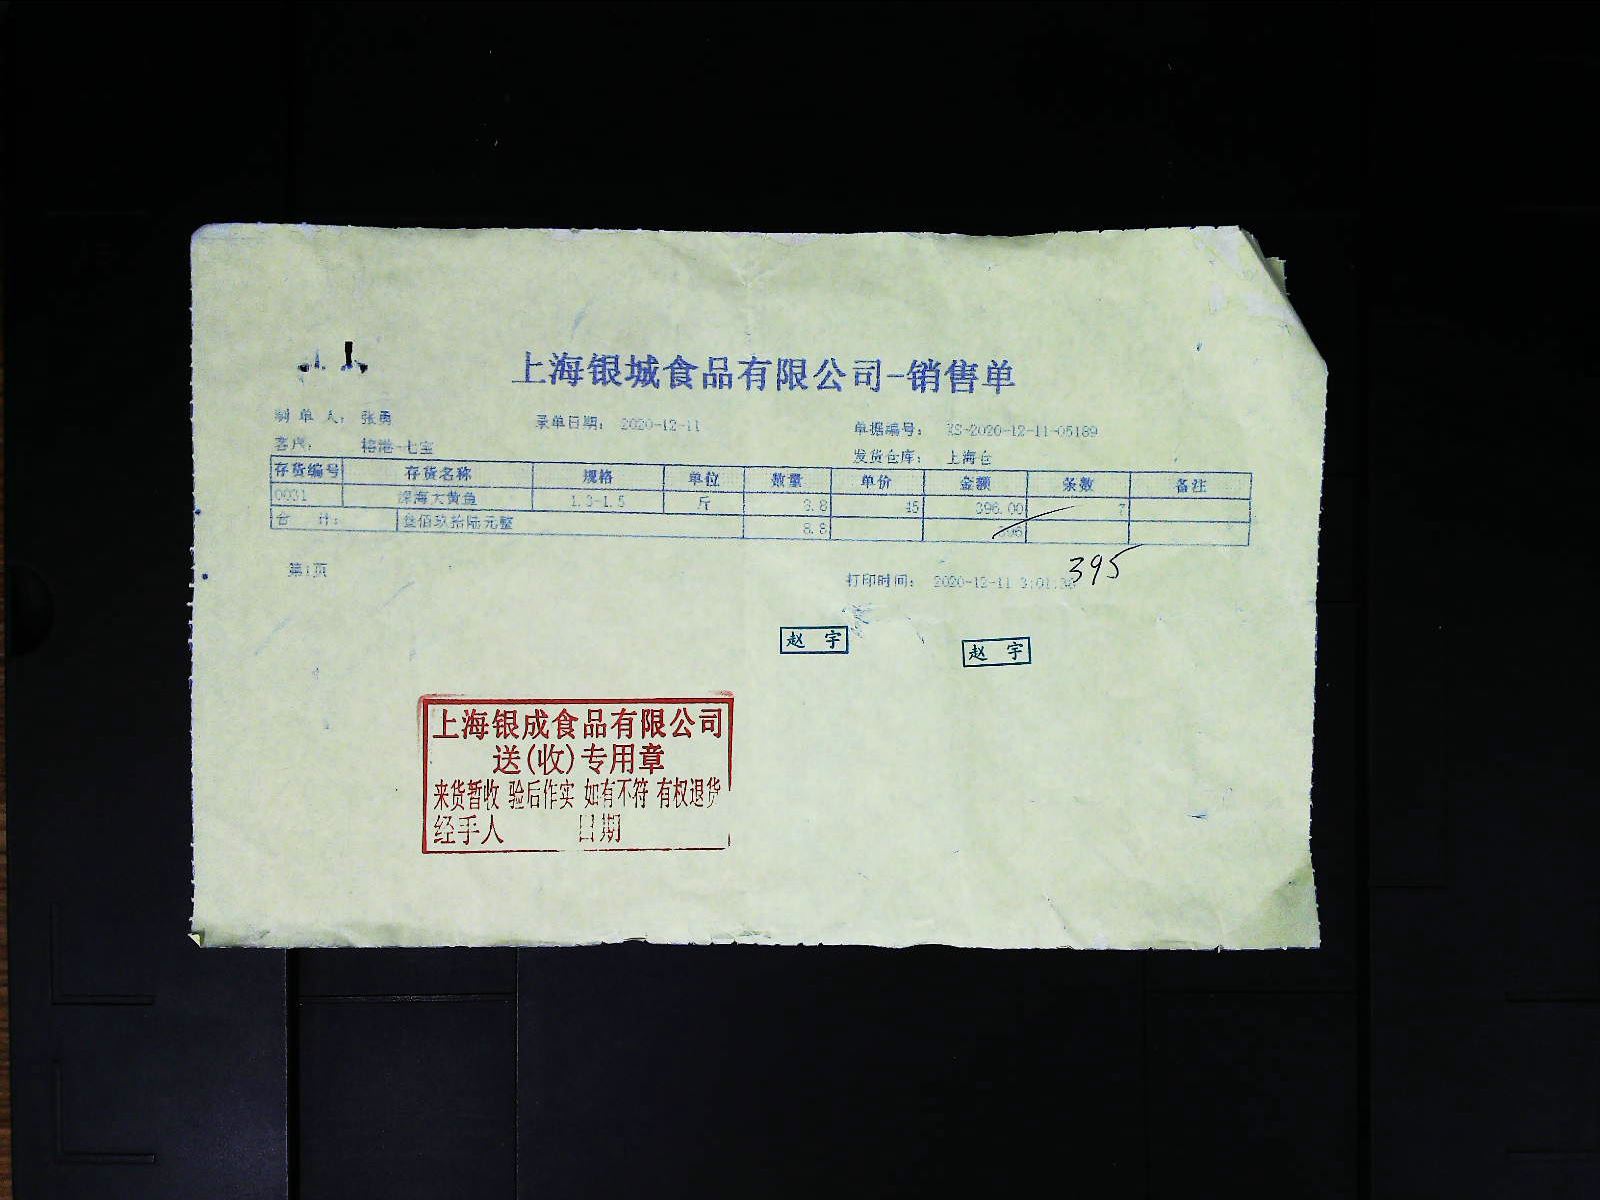 上海银城食品有限公司-销售单
制 单 人： 张勇 录单日期： 2020-12-11 单据编号： XS-2020-12-11-05189
客户： 榕港-七宝 发货仓库： 上海仓
存货编号 存货名称 规格 单位 数量 单价 金额 条数 备注
0031 深海大黄鱼 1.3-1.5 斤 8.8 45 396.00 7
合 计： 叁佰玖拾陆元整 8.8 396
395
第1页 打印时间： 2020-12-11 3:01:
赵 宇 赵 宇
上海银成食品有限公司
送(收)专用章
来货暂收 验后作实 如有不符 有权退货
经手人 日期